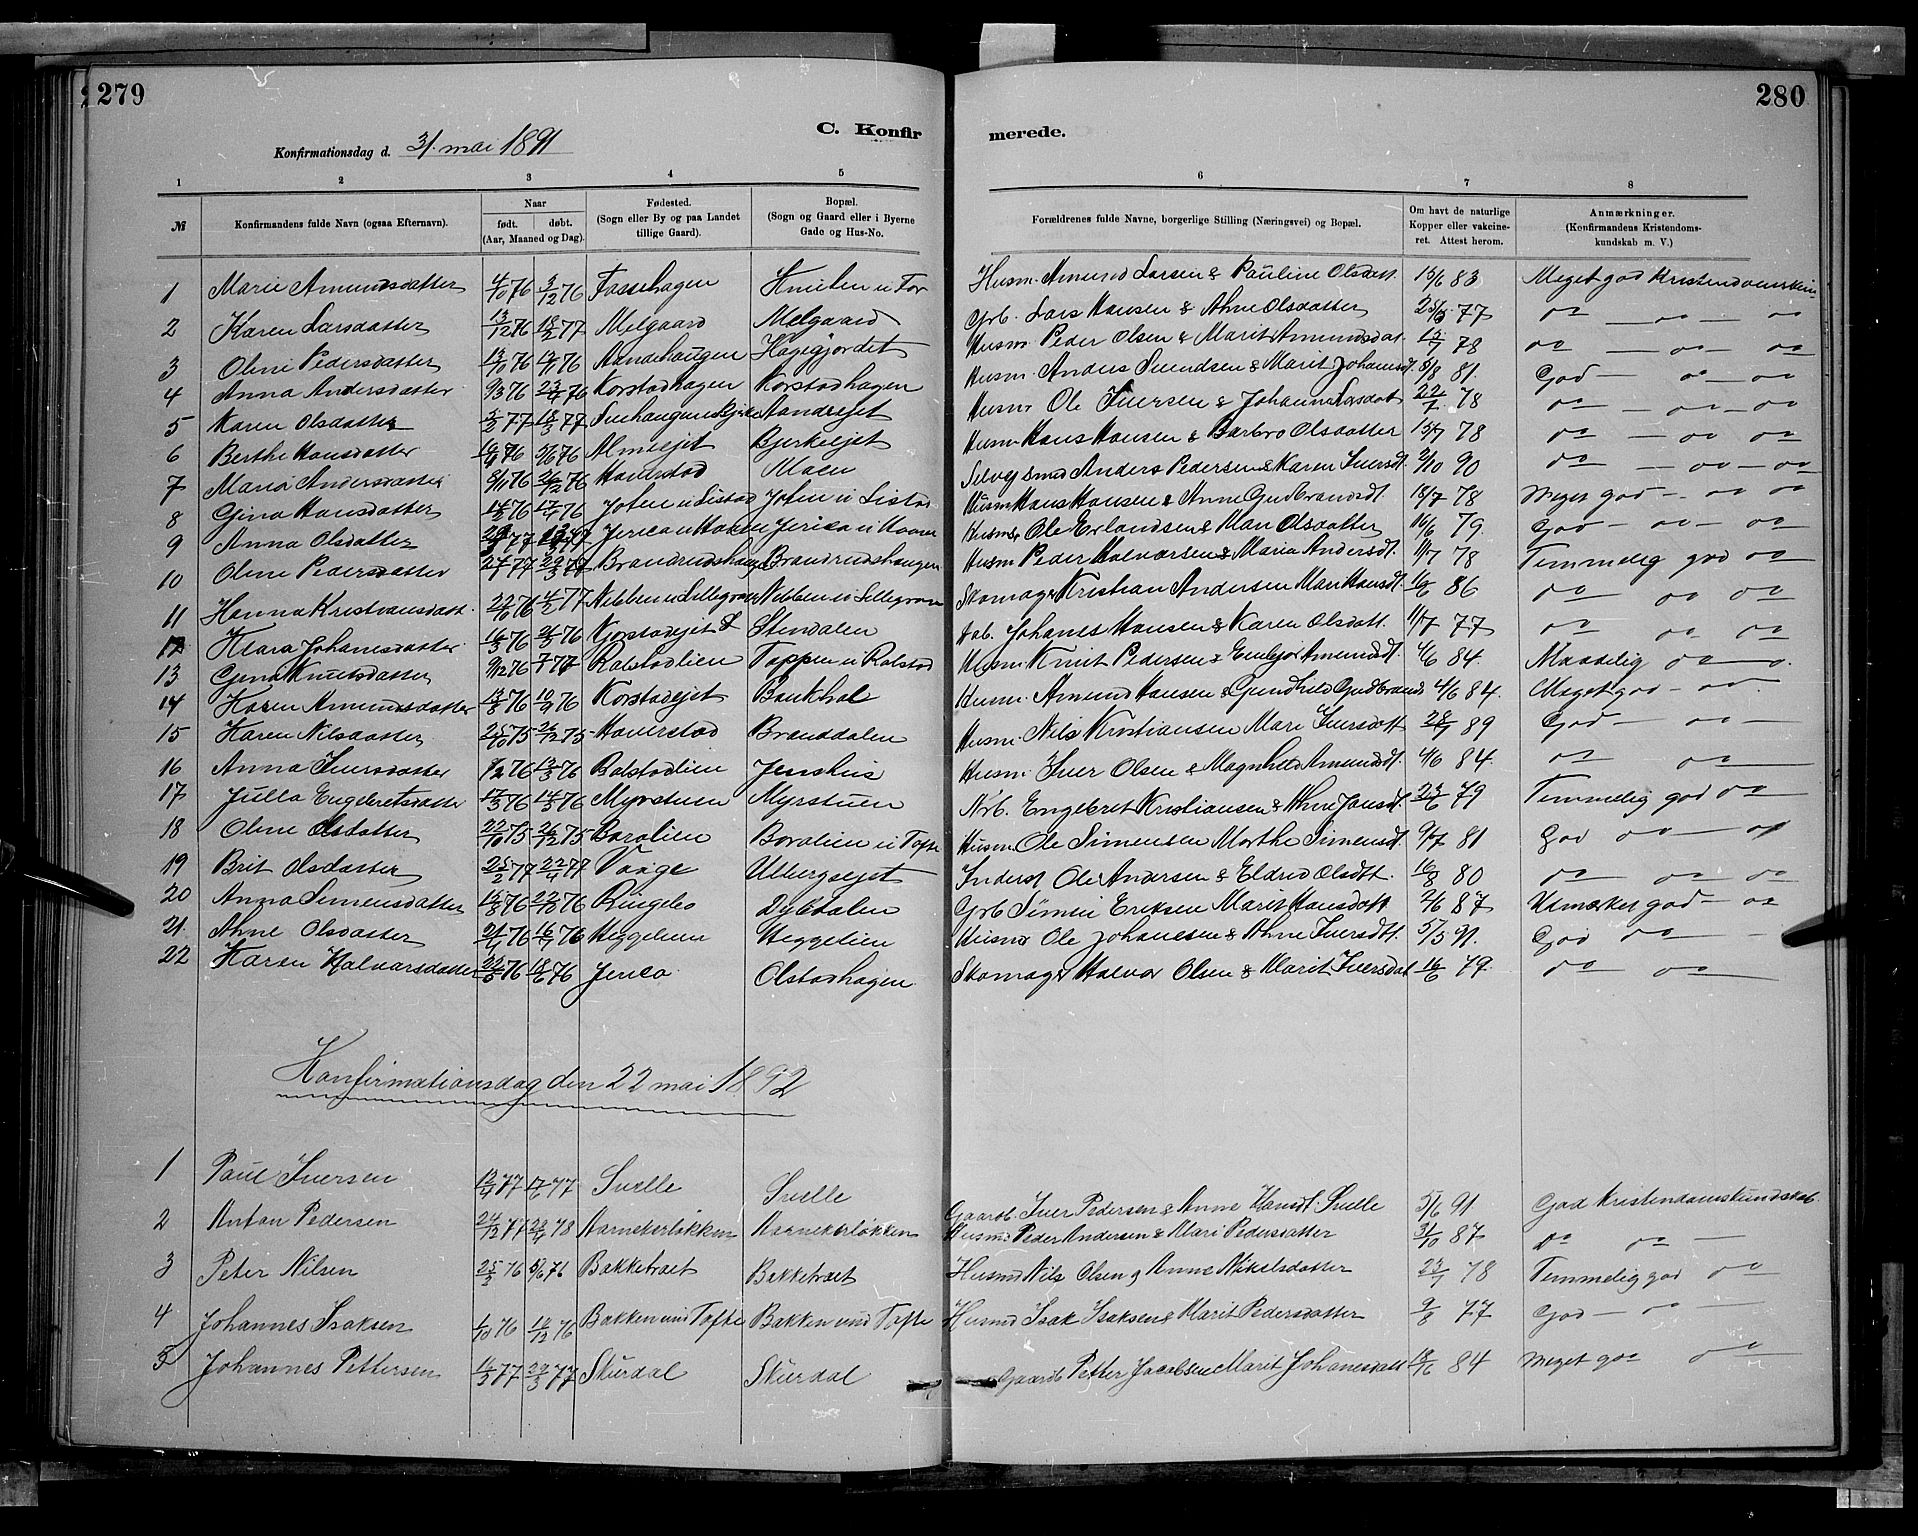 279
280
C. Konfirmerede.
Konfirmationsdag d. 31. mai 1891
1 2 3 4 5 6 7 8
№ Konfirmandens fulde Navn (ogsaa Efternavn). Naar født. døbt. (Aar, Maaned og Dag). Fødested. (Sogn eller By og paa Landet tillige Gaard). Bopæl. (Sogn og Gaard eller i Byerne Gade og Hus-No. Forældrenes fulde Navne, borgerlige Stilling (Næringsvei) og Bopæl. Om havt de naturlige Kopper eller vakcineret. Attest herom. Anmærkninger. (Konfirmandens Kristendomskundskab m. V.)
1 Marie Amundsdatter 4/10 76 3/12 76 Husm. Amund Larsen & Pauline Olsdatt. 15/6 83 Meget god
2 Karen Larsdatter 13/12 76 18/2 77 Melgaard Melgaard Grb. Lars Hansen & Ahne Olsdatter 77 do — do — do
3 Oline Pedersdatter 76 76 Hagegjordet Husm. Peder Olsen & Marit Amundsdat. 78 do — do — do
4 Anna Andersdatter 9/3 76 23/4 76 Korstadhagen Korstadhagen Husm. Anders Svendsen & Marit Johansdt. 81. God — do — do
5 Karen Olsdatter 77 18/3 77 Husm. Ole Iversen & Johanne Larsdat 22/7 78 do — do — do
6 Berthe Hansdatter 76 76 Almeejet Bjerkeejet Husm. Hans Hansen & Barbro Olsdatter 15/7 78 do — do do
7 Maria Andersdatter 9/11 76 26/12 76 Haverstad Moen Selvejsmd Anders Pedersen & Karen Iversdt. 2/10 90 do — do — do
8 Gina Hansdatter 76 76 Joten u Listad Joten u Listad Husm. Hans Hansen & Anne Gudbrandsdt 18/7 78 Meget god — do do
9 Anna Olsdatter 77 Husm. Ole Erlandsen & Mari Olsdatter 16/6 79 God — do — do
10 Oline Pedersdatter 77 77 Brandrudshaugen Brandrudshaugen Husm. Peder Halvorsen & Maria Andersdt. 11/7 78 Temmelig god do
11 Hanna Kristiansdatt. 22/10 76 4/2 77 Nibben u Lillegram Nibben u Lillegram Skomager Kristian Andersen Mari Hansdt. 16/6 86 do do do
12 Klara Johanesdatter 76 76 Stendalen Johanes Hansen & Karen Olsdatt. 11/7 77 do do do
13 Gina Knutsdatter 9/12 76 77 Rolstadlien Toppen u Rolstad Husm. Knut Pedersen & Engebor Amundsdt. 4/6 84. Maadelig do — do.
14 Karen Amundsdatter 13/8 76 10/9 76 Korstadejet Husm. Amund Hansen & Gunhild Gudbrand 4/6 84. Meget god — do.
15 Karen Nilsdatter 25/10 75 26/12 75 Haverstad Branddalen Husm. Nils Kristiansen Mari Iversdatt. 28/7 89 God — do —
16 Anna Iversdatter 76 76 Rolstadlien Jenshus Husm. Iver Olsen & Magnhild Amundsdt. 4/6 84. do do
17 Julla Engebretsdatter 76 76 Myrstuen Myrstuen Nrb. Engebret Kristiansen & Ahne Jansdt. 23/6 79 Temmelig god do —
18 Oline Olsdatter 22/10 75 26/12 75 Boralien Boralien u Tofte Husm. Ole Simensen Marthe Simensdt. 9/7 81 God do — do
19 Brit Olsdatter 25/2 77 22/4 77 Vaage Ulbergsejet Inderst Ole Andersen & Eldrid Olsdtt. 16/8 80 do — do — do
20 Anna Simensdatter 76 76 Ringebo Grb Simen Eriksen Marit Hansdatt 2/6 87 Udmærket god — do
21. Ahne Olsdatter 76 76 Heggelien Heggelien Husmd Ole Johanesen & Ahne Iversdtt. 5/5 91. God do —
22 Karen Halvorsdatter 76 18/6 76 Olstadhagen. Skomager Halvor Olsen & Marit Iversdat 16/6 79. do do
Konfirmationsdag den 22 mai 1892
1 Paul Iversen 77 77 Svelle Svelle Gaardb. Iver Pedersen & Anne Hansdt. Svelle 5/6 91 God Kristendomskundskab.
2 Anton Pedersen 24/12 77 78 Husmd Peder Andersen & Mari Pedersdatter 31/10 87 do do —
3 Peter Nilsen 25/3 76 5/6 76 Bakketraet Bakketraet Husmd Nils Olsen g Anne Nikelsdatter 23/7 78 Temmelig god do
4 Johannes Isaksen 1/10 76 76 Bakken und Tofte Bakken und Tofte Husmd Isak Isaksen & Marit Pedersdatter 9/8 77 God — do —
5 Johannes Pettersen 77 77 Skurdal Skurdal Gaardb Petter Jacobsen Marit Johanesdatt 84 meget god do